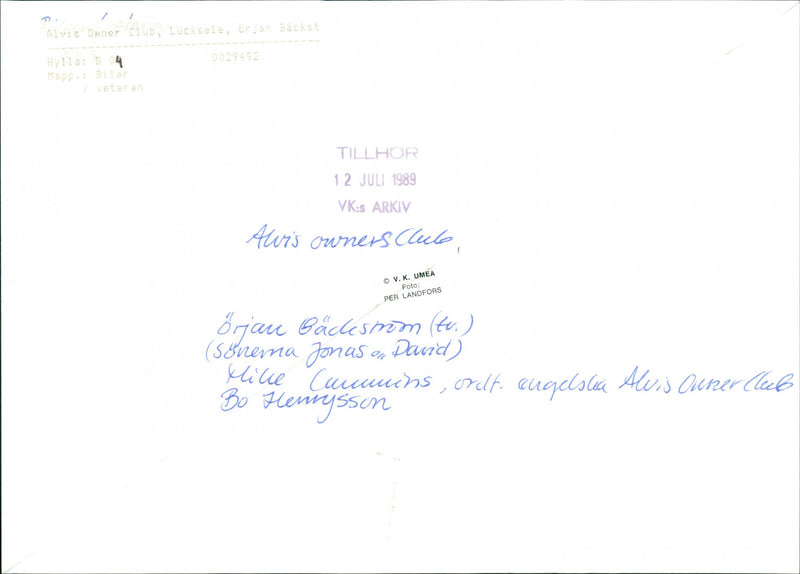 Alvis Owner Club, Lucksele, Örjan Bäckst
Hylla: B 04
0029492
Mapp.: Bilar
/ veteran
TILLHÖR
12 JULI 1989
VK:s ARKIV
Alvis owners Club
© V.K. UMEÅ
Foto:
PER LANDFORS
Örjan Bäckström (tv.)
(sönerna Jonas o. David)
Mike Cummins, ordf. engelska Alvis Owner Club
Bo Henrysson